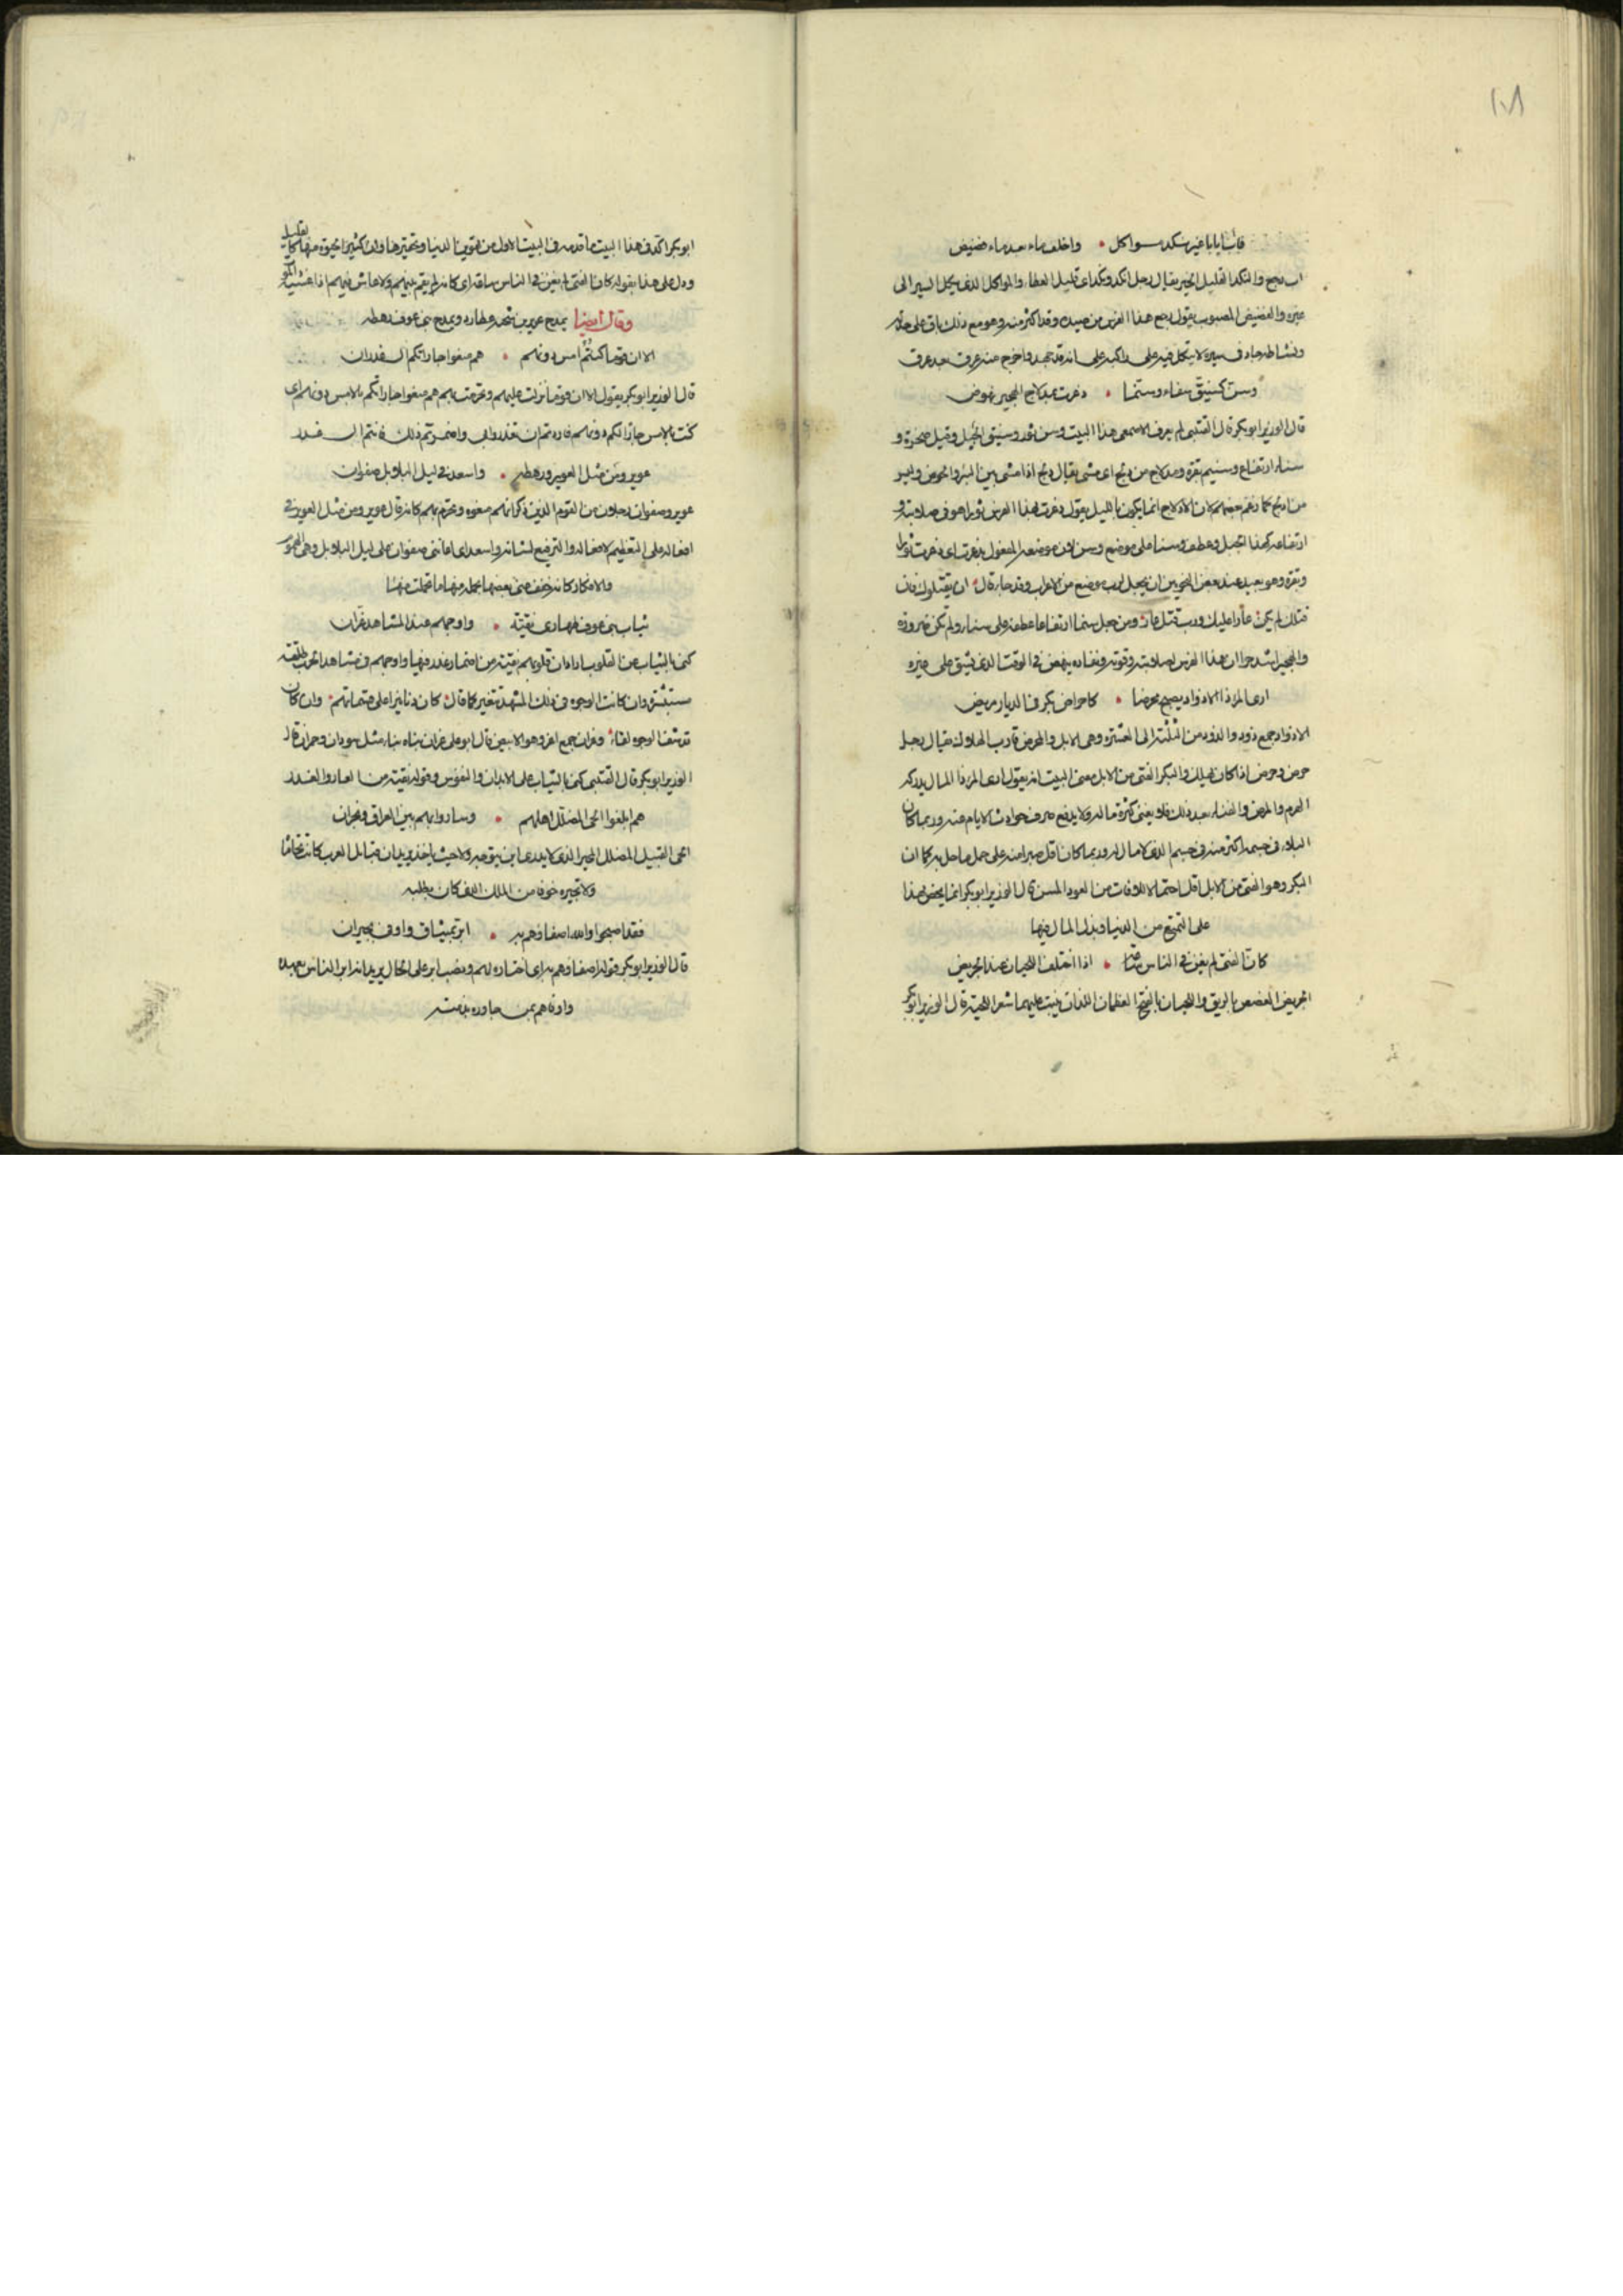 ١٠٨
فآب إيابا غير نكد مواكل • واخلف ماء بعد ماء فضيض
آب رجع والنكد القليل الخير يقال رجل انكد ونكد اى قليل العطاء والمواكل الذى يكل السير الى
غيره والفضيض المصبوب يقول رجع هذا الفرس من صيده وقد اكثر منه وهو مع ذلك باق على حاله
ونشاطه جاد فى سيره لا يتكل فيه على راكبه على انه قد جهد واخرج منه عرق بعد عرق
وسن كسنيق سناء وسنما • ذعرت بمدلاج الهجير نهوض
قال الوزير ابو بكر قال القتبى لم يعرف الاصمعى هذا البيت وسن ثور وسنيق الجبل وقيل صخرة و
سناء ارتفاع وسنيم بقرة ومدلاج من دلج اى مشى يقال دلج اذا مشى بين البئر والحوض وليس
من ادلج كما زعم بعضهم لان الادلاج انما يكون بالليل يقول ذعرت بهذا الفرس ثورا هو فى صلابته و
ارتفاعه كهذا الجبل وعطف وسنما على موضع وسن لان موضعه المفعول بذعرت اى ذعرت ثورا
وبقرة وهو بعيد عند بعض النحويين ان يجعل لرب موضع من الاعراب وقد جاء قال • ان يقتلوك فان
قتلك لم يكن • عارا عليك ورب قتل عار • ومن جعل سنما ارتفاعا عطفه على سناء ولم تكن ضرورة
والهجير اشد حرا ان هذا الفرس لصلابته وقوته ونفاذه ينهض فى الوقت الذى يشق على غيره
ارى المرء ذا الاذواد يصبح محرضا • كاحراض بكر فى الديار مريض
الاذواد جمع ذود والذود من الثلثة الى العشرة وهى الابل والمحرض قارب الهلاك يقال رجل
حرض وحرض اذا كان هلك والبكر الفتى من الابل معنى البيت انه يقول ارى المرء ذا المال يدركه
الهرم والمرض والفناء بعد ذلك فلا يغنى كثرة ماله ولا يدفع صرف حوادث الايام عنه وربما كان
البلاء فى جسمه اكثر منه فى جسم الذى لا مال له وربما كان اقل صبرا منه على حمل ما حل به كما ان
البكر وهو الفتى من الابل اقل احتمالا للافات من العود المسن قال الوزير ابو بكر انما يحض بهذا
على التمتع من الدنيا وبذل المال فيها
كان الفتى لم يغن فى الناس ساعة • اذا اختلف اللحيان عند الجريض
الجريض الغصص بالريق واللحيان بالفتح العظمان اللذان ينبت عليهما شعر اللحية قال الوزير ابو بكر
ابو بكر اكد فى هذا البيت ما قدمه فى البيت الاول من تهوين الدنيا وتحقيرها وان كثير الحيوة منها كالقليل
ودل على هذا بقوله كان الفتى لم يغن فى الناس ساعة اى كانه لم يقم بينهم ولا عاش فيهم اذا غشيته الموت
وقال ايضا يمدح عوير بن شجنة بن عطارد ويمدح بنى عوف رهطه
الا ان قوما كنتم امس دونهم • هم منعوا جاراتكم آل غدران
قال الوزير ابو بكر يقول الا ان قوما نزلت عليهم وتحرمت بهم هم منعوا جاراتكم بالامس دونهم اى
كنت بالامس جارا لكم دونهم فاردتم ان تغدروا بى واضمرتم ذلك فانتم آل غدر
عوير ومن مثل العوير ورهطه • واسعد فى ليل البلابل صفوان
عوير وصفوان رجلان من القوم الذين ذكر انهم منعوه وتحرم بهم كانه قال عوير ومن مثل العوير فى
افعاله على التعظيم لافعاله والترفيع لشانه واسعد اى اعاننى صفوان على ليل البلابل وهى الهموم
والافكار كانه خفف عنى بعضها بحمله منها ما تحملت منها
ثياب بنى عوف طهارى نقية • واوجههم عند المشاهد غران
كنى بالثياب عن القلوب اراد ان قلوبهم نقية من اضمار غدر فيها واوجههم فى مشاهد الحرب طلقة
مستبشرة وان كانت الوجوه فى ذلك المشهد تتغير كما قال • كان دنانيرا على قسماتهم • وان كان
قد شف الوجوه لقاء • وغران جمع اغر وهو الابيض قال ابو على غران بناه بناء مثل سودان وحمران قال
الوزير ابو بكر قال القتبى كنى بالثياب على الابدان والنفوس وقوله نقية من العار والغدر
هم ابلغوا الحى المضلل اهلهم • وساروا بهم بين العراق ونجران
الحى القبيل المضلل المحير الذى لا يدرى اين يتوجه ولا حيث ياخذ يريد ان قبائل العرب كانت تتحاماه
ولا تجيره خوفا من الملك الذى كان يطلبه
فقد اصبحوا والله اصفاهم به • ابر بميثاق واوفى بجيران
قال الوزير ابو بكر قوله اصفاهم به اى اختاره لهم ونصب ابر على الحال يريد انه ابر الناس بعهده
واوفاهم بمن جاوره بذمته